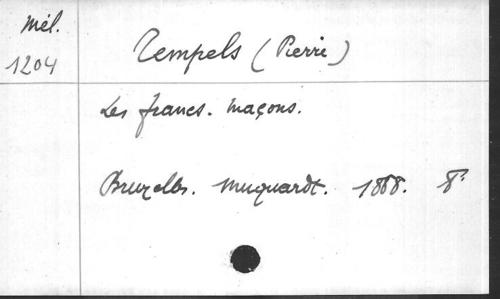 Mél.
1204
Tempels (Pierre)
Les francs-maçons.
Bruxelles. Muquardt. 1888. 8°